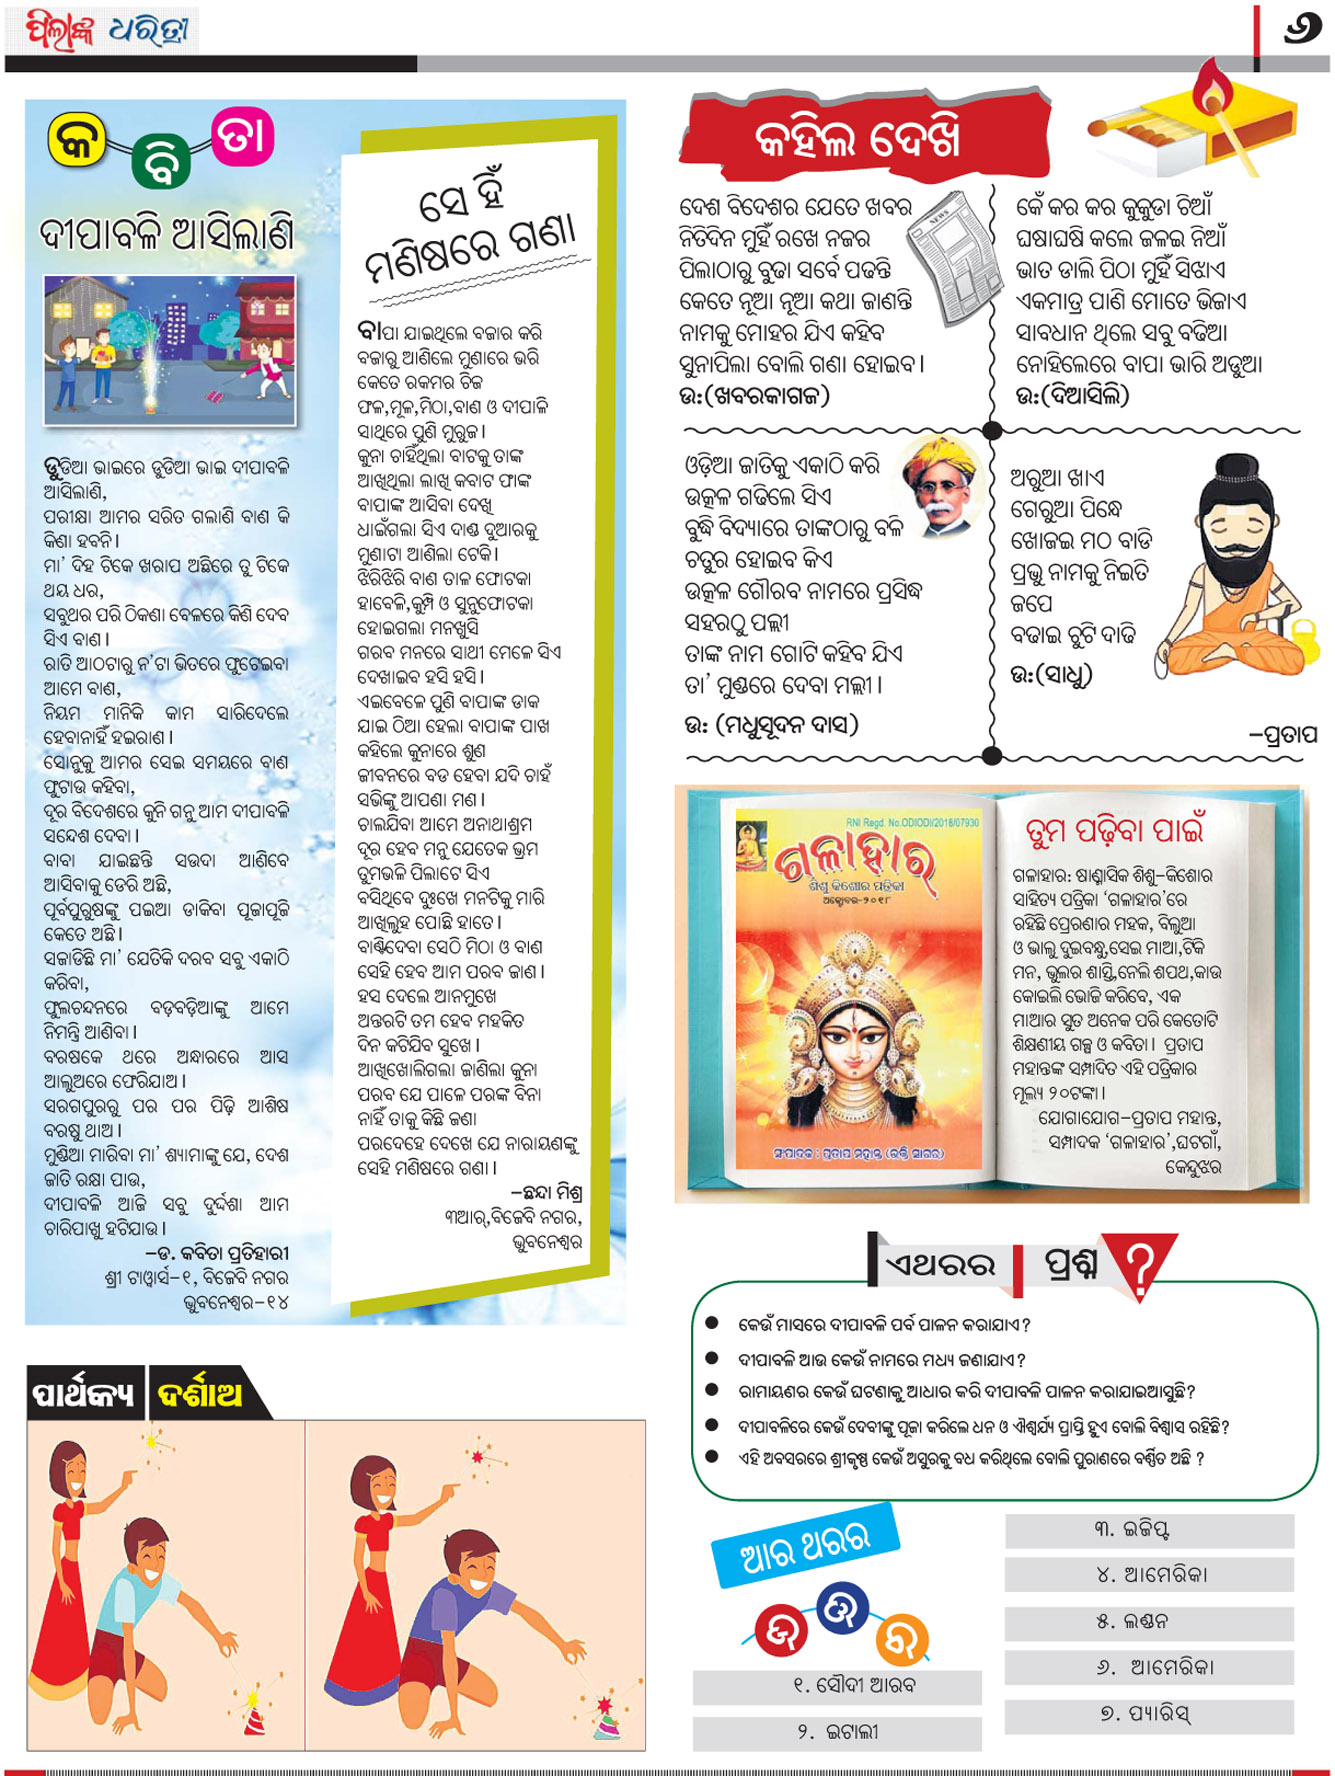 ପିଲାଙ୍କ ଧରିତ୍ରୀ
୬
କବିତା
ଦୀପାବଳି ଆସିଲାଣି
ଡୁଡିଆ ଭାଇରେ ଡୁଡିଆ ଭାଇ ଦୀପାବଳି
ଆସିଲାଣି,
ପରୀକ୍ଷା ଆମର ସରିତ ଗଲାଣି ବାଣ କି
କିଣା ହବନି ।
ମା' ଦିହ ଟିକେ ଖରାପ ଅଛିରେ ତୁ ଟିକେ
ଥୟ ଧର,
ସବୁଥର ପରି ଠିକଣା ବେଳରେ କିଣି ଦେବ
ସିଏ ବାଣ ।
ରାତି ଆଠଟାରୁ ନ'ଟା ଭିତରେ ଫୁଟେଇବା
ଆମେ ବାଣ,
ନିୟମ ମାନିକି କାମ ସାରିଦେଲେ
ହେବାନାହିଁ ହଇରାଣ ।
ସୋନୁକୁ ଆମର ସେଇ ସମୟରେ ବାଣ
ଫୁଟାଉ କହିବା,
ଦୂର ବିଦେଶରେ କୁନି ଗନୁ ଆମ ଦୀପାବଳି
ସନ୍ଦେଶ ଦେବା ।
ବାବା ଯାଇଛନ୍ତି ସଉଦା ଆଣିବେ
ଆସିବାକୁ ଡେରି ଅଛି,
ପୂର୍ବପୁରୁଷଙ୍କୁ ପଇଥା ଡାକିବା ପୂଜାପୂଜି
କେତେ ଅଛି ।
ସଜାଡିଛି ମା' ଯେତିକି ଦରବ ସବୁ ଏକାଠି
କରିବା,
ଫୁଲଚନ୍ଦନରେ ବଡ଼ବଡ଼ିଆଙ୍କୁ ଆମେ
ନିମନ୍ତ୍ରି ଆଣିବା ।
ବରଷକେ ଥରେ ଅନ୍ଧାରରେ ଆସ
ଆଲୁଅରେ ଫେରିଯାଅ ।
ସରଗପୁରରୁ ପର ପର ପିଢ଼ି ଆଶିଷ
ବରଷୁ ଥାଅ ।
ମୁଣ୍ଡିଆ ମାରିବା ମା' ଶ୍ୟାମାଙ୍କୁ ଯେ, ଦେଶ
ଜାତି ରକ୍ଷା ପାଉ,
ଦୀପାବଳି ଆଜି ସବୁ ଦୁର୍ଦ୍ଦଶା ଆମ
ଚାରିପାଖୁ ହଟିଯାଉ ।
-ଡ. କବିତା ପ୍ରତିହାରୀ
ଶ୍ରୀ ଟାୱାର୍ସ-୧, ବିଜେବି ନଗର
ଭୁବନେଶ୍ୱର-୧୪
ସେ ହିଁ
ମଣିଷରେ ଗଣା
ବାପା ଯାଇଥିଲେ ବଜାର କରି
ବଜାରୁ ଆଣିଲେ ମୁଣାରେ ଭରି
କେତେ ରକମର ଚିଜ
ଫଳ,ମୂଳ,ମିଠା,ବାଣ ଓ ଦୀପାଳି
ସାଥିରେ ପୁଣି ମୁରୁଜ ।
କୁନା ଚାହିଁଥିଲା ବାଟକୁ ତାଙ୍କ
ଆଖିଥିଲା ଲାଖି କବାଟ ଫାଙ୍କ
ବାପାଙ୍କ ଆସିବା ଦେଖି
ଧାଇଁଗଲା ସିଏ ଦାଣ୍ଡ ଦୁଆରକୁ
ମୁଣାଟା ଆଣିଲା ଟେକି ।
ଝିରିଝିରି ବାଣ ତାଳ ଫୋଟକା
ହାବେଳି,କୁମ୍ପି ଓ ସୁନୁଫୋଟକା
ହୋଇଗଲା ମନଖୁସି
ଗରବ ମନରେ ସାଥୀ ମେଳେ ସିଏ
ଦେଖାଇବ ହସି ହସି ।
ଏଇବେଳେ ପୁଣି ବାପାଙ୍କ ଡାକ
ଯାଇ ଠିଆ ହେଲା ବାପାଙ୍କ ପାଖ
କହିଲେ କୁନାରେ ଶୁଣ
ଜୀବନରେ ବଡ ହେବା ଯଦି ଚାହଁ
ସଭିଙ୍କୁ ଆପଣା ମଣ ।
ଚାଲଯିବା ଆମେ ଅନାଥାଶ୍ରମ
ଦୂର ହେବ ମନୁ ଯେତେକ ଭ୍ରମ
ତୁମଭଳି ପିଲାଟେ ସିଏ
ବସିଥିବେ ଦୁଃଖେ ମନଟିକୁ ମାରି
ଆଖିଲୁହ ପୋଛି ହାତେ ।
ବାଣ୍ଟିଦେବା ସେଠି ମିଠା ଓ ବାଣ
ସେହି ହେବ ଆମ ପରବ ଜାଣ ।
ହସ ଦେଲେ ଆନମୁଖେ
ଅନ୍ତରଟି ତମ ହେବ ମହକିତ
ଦିନ କଟିଯିବ ସୁଖେ ।
ଆଖିଖୋଲିଗଲା ଜାଣିଲା କୁନା
ପରବ ଯେ ପାଳେ ପରଙ୍କ ବିନା
ନାହିଁ ତାକୁ କିଛି ଜଣା
ପରଦେହେ ଦେଖେ ଯେ ନାରାୟଣଙ୍କୁ
ସେହି ମଣିଷରେ ଗଣା ।
-ଛନ୍ଦା ମିଶ୍ର
୩ଆର୍,ବିଜେବି ନଗର,
ଭୁବନେଶ୍ୱର
କହିଲ ଦେଖି
ଦେଶ ବିଦେଶର ଯେତେ ଖବର
ନିତିଦିନ ମୁହିଁ ରଖେ ନଜର
ପିଲାଠାରୁ ବୁଢା ସର୍ବେ ପଢନ୍ତି
କେତେ ନୂଆ ନୂଆ କଥା ଜାଣନ୍ତି
ନାମକୁ ମୋହର ଯିଏ କହିବ
ସୁନାପିଲା ବୋଲି ଗଣା ହୋଇବ ।
ଉ:(ଖବରକାଗଜ)
NEWS
କେଁ କର କର କୁକୁଡା ଚିଆଁ
ଘଷାଘଷି କଲେ ଜଳଇ ନିଆଁ
ଭାତ ଡାଲି ପିଠା ମୁହିଁ ସିଝାଏ
ଏକମାତ୍ର ପାଣି ମୋତେ ଭିଜାଏ
ସାବଧାନ ଥିଲେ ସବୁ ବଢିଆ
ନୋହିଲେରେ ବାପା ଭାରି ଅଡୁଆ
ଉ:(ଦିଆସିଲି)
ଓଡ଼ିଆ ଜାତିକୁ ଏକାଠି କରି
ଉତ୍କଳ ଗଢିଲେ ସିଏ
ବୁଦ୍ଧି ବିଦ୍ୟାରେ ତାଙ୍କଠାରୁ ବଳି
ଚତୁର ହୋଇବ କିଏ
ଉତ୍କଳ ଗୌରବ ନାମରେ ପ୍ରସିଦ୍ଧ
ସହରଠୁ ପଲ୍ଲୀ
ତାଙ୍କ ନାମ ଗୋଟି କହିବ ଯିଏ
ତା' ମୁଣ୍ଡରେ ଦେବା ମଲ୍ଲୀ ।
ଉ: (ମଧୁସୂଦନ ଦାସ)
ଅରୁଆ ଖାଏ
ଗେରୁଆ ପିନ୍ଧେ
ଖୋଜଇ ମଠ ବାଡି
ପ୍ରଭୁ ନାମକୁ ନିଇତି
ଜପେ
ବଢାଇ ଚୁଟି ଦାଢି
ଉ:(ସାଧୁ)
-ପ୍ରତାପ
RNI Regd. No.ODIODI/2018/07930
ଗଳାହାର
ଶିଶୁ କିଶୋର ପତ୍ରିକା
ଅକ୍ଟୋବର-୨୦୧୮
ସଂପାଦକ : ପ୍ରତାପ ମହାନ୍ତ (ଭକ୍ତି ସାଗର)
ତୁମ ପଢ଼ିବା ପାଇଁ
ଗଳାହାର: ଷାଣ୍ମାସିକ ଶିଶୁ-କିଶୋର
ସାହିତ୍ୟ ପତ୍ରିକା 'ଗଳାହାର'ରେ
ରହିଛି ପ୍ରେରଣାର ମହକ, ବିଲୁଆ
ଓ ଭାଲୁ ଦୁଇବନ୍ଧୁ,ସେଇ ମାଆ,ଟିକି
ମନ, ଭୁଲର ଶାସ୍ତି,ନେଲି ଶପଥ,କାଉ
କୋଇଲି ଭୋଜି କରିବେ, ଏକ
ମାଆର ସୁତ ଅନେକ ପରି କେତୋଟି
ଶିକ୍ଷଣୀୟ ଗଳ୍ପ ଓ କବିତା । ପ୍ରତାପ
ମହାନ୍ତଙ୍କ ସମ୍ପାଦିତ ଏହି ପତ୍ରିକାର
ମୂଲ୍ୟ ୨୦ଟଙ୍କା ।
ଯୋଗାଯୋଗ-ପ୍ରତାପ ମହାନ୍ତ,
ସମ୍ପାଦକ 'ଗଳାହାର',ଘଟଗାଁ,
କେନ୍ଦୁଝର
ଏଥରର ପ୍ରଶ୍ନ ?
● କେଉଁ ମାସରେ ଦୀପାବଳି ପର୍ବ ପାଳନ କରାଯାଏ ?
● ଦୀପାବଳି ଆଉ କେଉଁ ନାମରେ ମଧ୍ୟ ଜଣାଯାଏ ?
● ରାମାୟଣର କେଉଁ ଘଟଣାକୁ ଆଧାର କରି ଦୀପାବଳି ପାଳନ କରାଯାଇଆସୁଛି?
● ଦୀପାବଳିରେ କେଉଁ ଦେବୀଙ୍କୁ ପୂଜା କରିଲେ ଧନ ଓ ଐଶ୍ୱର୍ଯ୍ୟ ପ୍ରାପ୍ତି ହୁଏ ବୋଲି ବିଶ୍ୱାସ ରହିଛି?
● ଏହି ଅବସରରେ ଶ୍ରୀକୃଷ୍ଣ କେଉଁ ଅସୁରକୁ ବଧ କରିଥିଲେ ବୋଲି ପୁରାଣରେ ବର୍ଣ୍ଣିତ ଅଛି ?
ପାର୍ଥକ୍ୟ ଦର୍ଶାଅ
ଆର ଥରର
ଉତ୍ତର
୧. ସୌଦୀ ଆରବ
୨. ଇଟାଲୀ
୩. ଇଜିପ୍ଟ
୪. ଆମେରିକା
୫. ଲଣ୍ଡନ
୬. ଆମେରିକା
୭. ପ୍ୟାରିସ୍